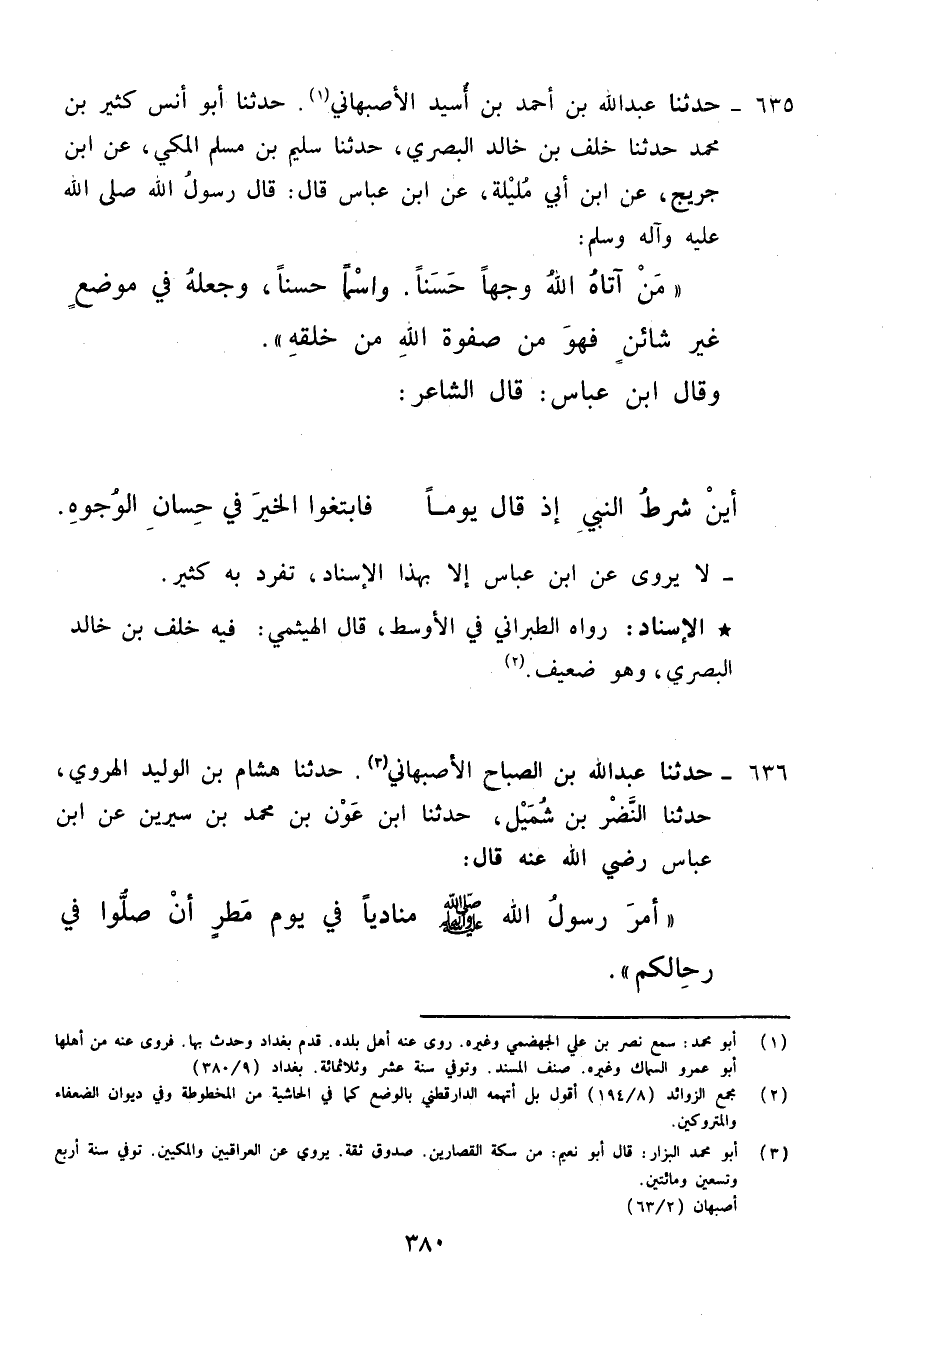 ٦٣٥ ـ حدثنا عبدالله بن أحمد بن أُسيد الأصبهاني(١). حدثنا أبو أنس كثير بن
محمد حدثنا خلف بن خالد البصري، حدثنا سليم بن مسلم المكي، عن ابن
جريج، عن ابن أبي مُلَيْلة، عن ابن عباس قال: قال رسولُ الله صلى الله
عليه وآله وسلم:
« مَنْ آتاهُ اللهُ وجهاً حَسَناً. واسْماً حسناً، وجعلهُ في موضعٍ
غير شائنٍ فهوَ من صفوة اللهِ من خلقهِ».
وقال ابن عباس: قال الشاعر:
أينْ شرطُ النبيِ إذ قال يومـاً فابتغوا الخيرَ في حِسانِ الوُجوهِ.
ـ لا يروى عن ابن عباس إلا بهذا الإسناد، تفرد به كثير.
★ الإسناد: رواه الطبراني في الأوسط، قال الهيثمي: فيه خلف بن خالد
البصري، وهو ضعيف.(٢)
٦٣٦ ـ حدثنا عبدالله بن الصباح الأصبهاني(٣). حدثنا هشام بن الوليد الهروي،
حدثنا النَّضْر بن شُمَيْل، حدثنا ابن عَوْن بن محمد بن سيرين عن ابن
عباس رضي الله عنه قال:
« أمرَ رسولُ الله ﷺ منادياً في يوم مَطرٍ أنْ صلُّوا في
رحِالكم».
(١) أبو محمد: سمع نصر بن علي الجهضمي وغيره. روى عنه أهل بلده. قدم بغداد وحدث بها. فروى عنه من أهلها
أبو عمرو السماك وغيره. صنف المسند. وتوفي سنة عشر وثلاثمائة. بغداد (٣٨٠/٩)
(٢) مجمع الزوائد (١٩٤/٨) أقول بل أتهمه الدارقطني بالوضع كما في الحاشية من المخطوطة وفي ديوان الضعفاء
والمتروكين.
(٣) أبو محمد البزار: قال أبو نعيم: من سكة القصارين. صدوق ثقة. يروي عن العراقيين والمكيين. توفي سنة أربع
وتسعين ومائتين.
أصبهان (٦٣/٢)
٣٨٠